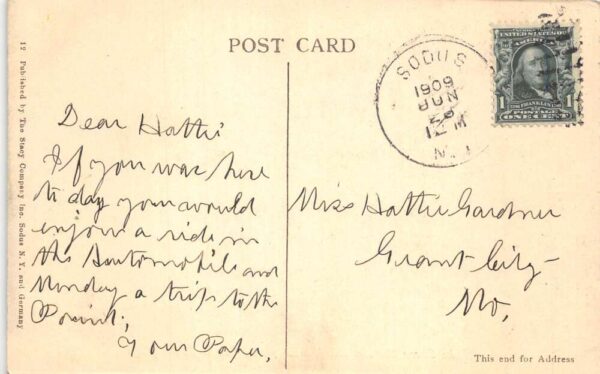 POST CARD
12 Published by The Stacy Company Inc. Sodus N. Y. and Germany
Dear Hattie
If you was here
to day you would
enjoy a ride in
the Automobile and
Monday a trip to the
Point,
Your Papa,
SODUS
1909
JUN
12 M
N.Y.
UNITED STATES OF
FRANKLIN
1 POSTAGE 1
ONE CENT
Miss Hattie Gardner
Grant City
Mo,
This end for Address